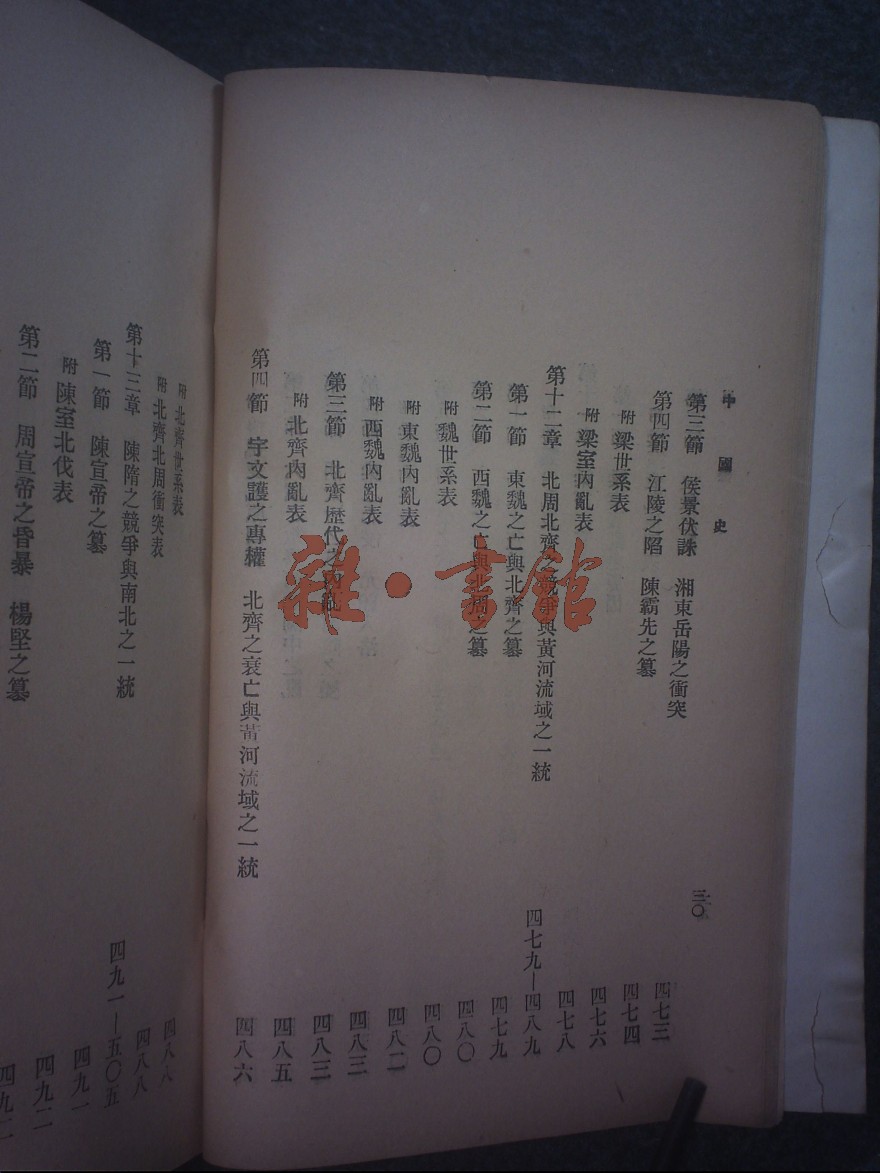 中國史
三〇
第三節 侯景伏誅 湘東岳陽之衝突 四七三
第四節 江陵之陷 陳霸先之篡 四七四
附 梁世系表 四七六
附 梁室內亂表 四七八
第十二章 北周北齊之競爭與黃河流域之一統 四七九—四八九
第一節 東魏之亡與北齊之篡 四七九
第二節 西魏之亡與北周之篡 四八〇
附 魏世系表 四八〇
附 東魏內亂表 四八二
附 西魏內亂表 四八三
第三節 北齊歷代之內亂 四八三
附 北齊內亂表 四八五
第四節 宇文護之專權 北齊之衰亡與黃河流域之一統 四八六
附 北齊世系表 四八八
附 北齊北周衝突表 四八八
第十三章 陳隋之競爭與南北之一統 四九一—五〇五
第一節 陳宣帝之篡 四九一
附 陳室北伐表 四九二
第二節 周宣帝之昏暴 楊堅之篡 四九二
雜·書館